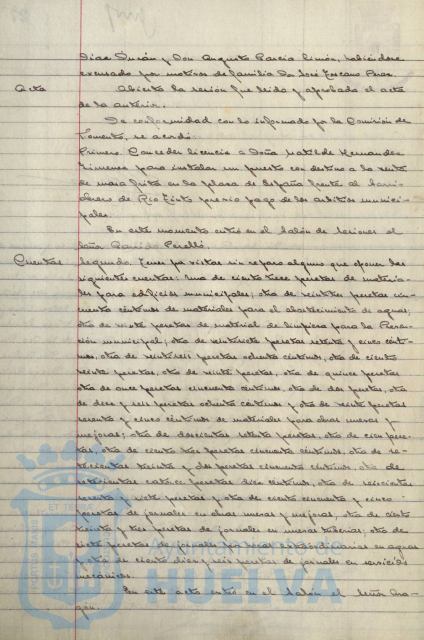 Diaz Durán y Don Augusto Garcia Limón, habiendose
excusado por motivos de familia Don José Toscano Perez.
Acta Abierta la sesión fue leida y aprobada el acta
de la anterior.
De conformidad con lo informado por la Comisión de
Fomento, se acordó:
Primero. Conceder licencia a Doña Matilde Hernandez
Jimenez para instalar un puesto con destino a la venta
de masa frita en la plaza de España frente al barrio
obrero de Rio Tinto previo pago de los arbitrios munici-
pales.
En este momento entró en el Salón de sesiones el
señor Garrido Perelló.
Cuentas Segundo. Tener por vistas sin reparo alguno que oponer las
siguientes cuentas: Una de ciento trece pesetas de materia-
les para edificios municipales; otra de veintitres pesetas cin-
cuenta céntimos de materiales para el abastecimiento de aguas;
otra de veinte pesetas de material de limpieza para la
municipal; otra de veintisiete pesetas setenta y cinco cénti-
mos, otra de veintiseis pesetas ochenta céntimos, otra de ciento
veinte pesetas, otra de veinte pesetas, otra de quince pesetas
otra de once pesetas cincuenta céntimos, otra de dos pesetas, otra
de doce y seis pesetas ochenta céntimos y otra de veinte pesetas
sesenta y cinco céntimos de materiales para obras nuevas y
mejoras; otra de doscientas setenta pesetas, otra de cien pese-
tas, otra de ciento tres pesetas cincuenta céntimos, otra de se-
tecientas treinta y dos pesetas cincuenta céntimos, otra de
setecientas catorce pesetas diez céntimos, otra de seiscientas
sesenta y siete pesetas y otra de ciento cincuenta y cinco
pesetas de jornales en obras nuevas y mejoras, otra de ciento
treinta y tres pesetas de jornales en nuevas tuberias; otra de
siete pesetas de jornales por horas extraordinarias en aguas
y otra de ciento diez y seis pesetas de jornales en servicios
mecánicos.
En este acto entró en el Salón el señor Ara-
gón.
Ayuntamiento de
HUELVA